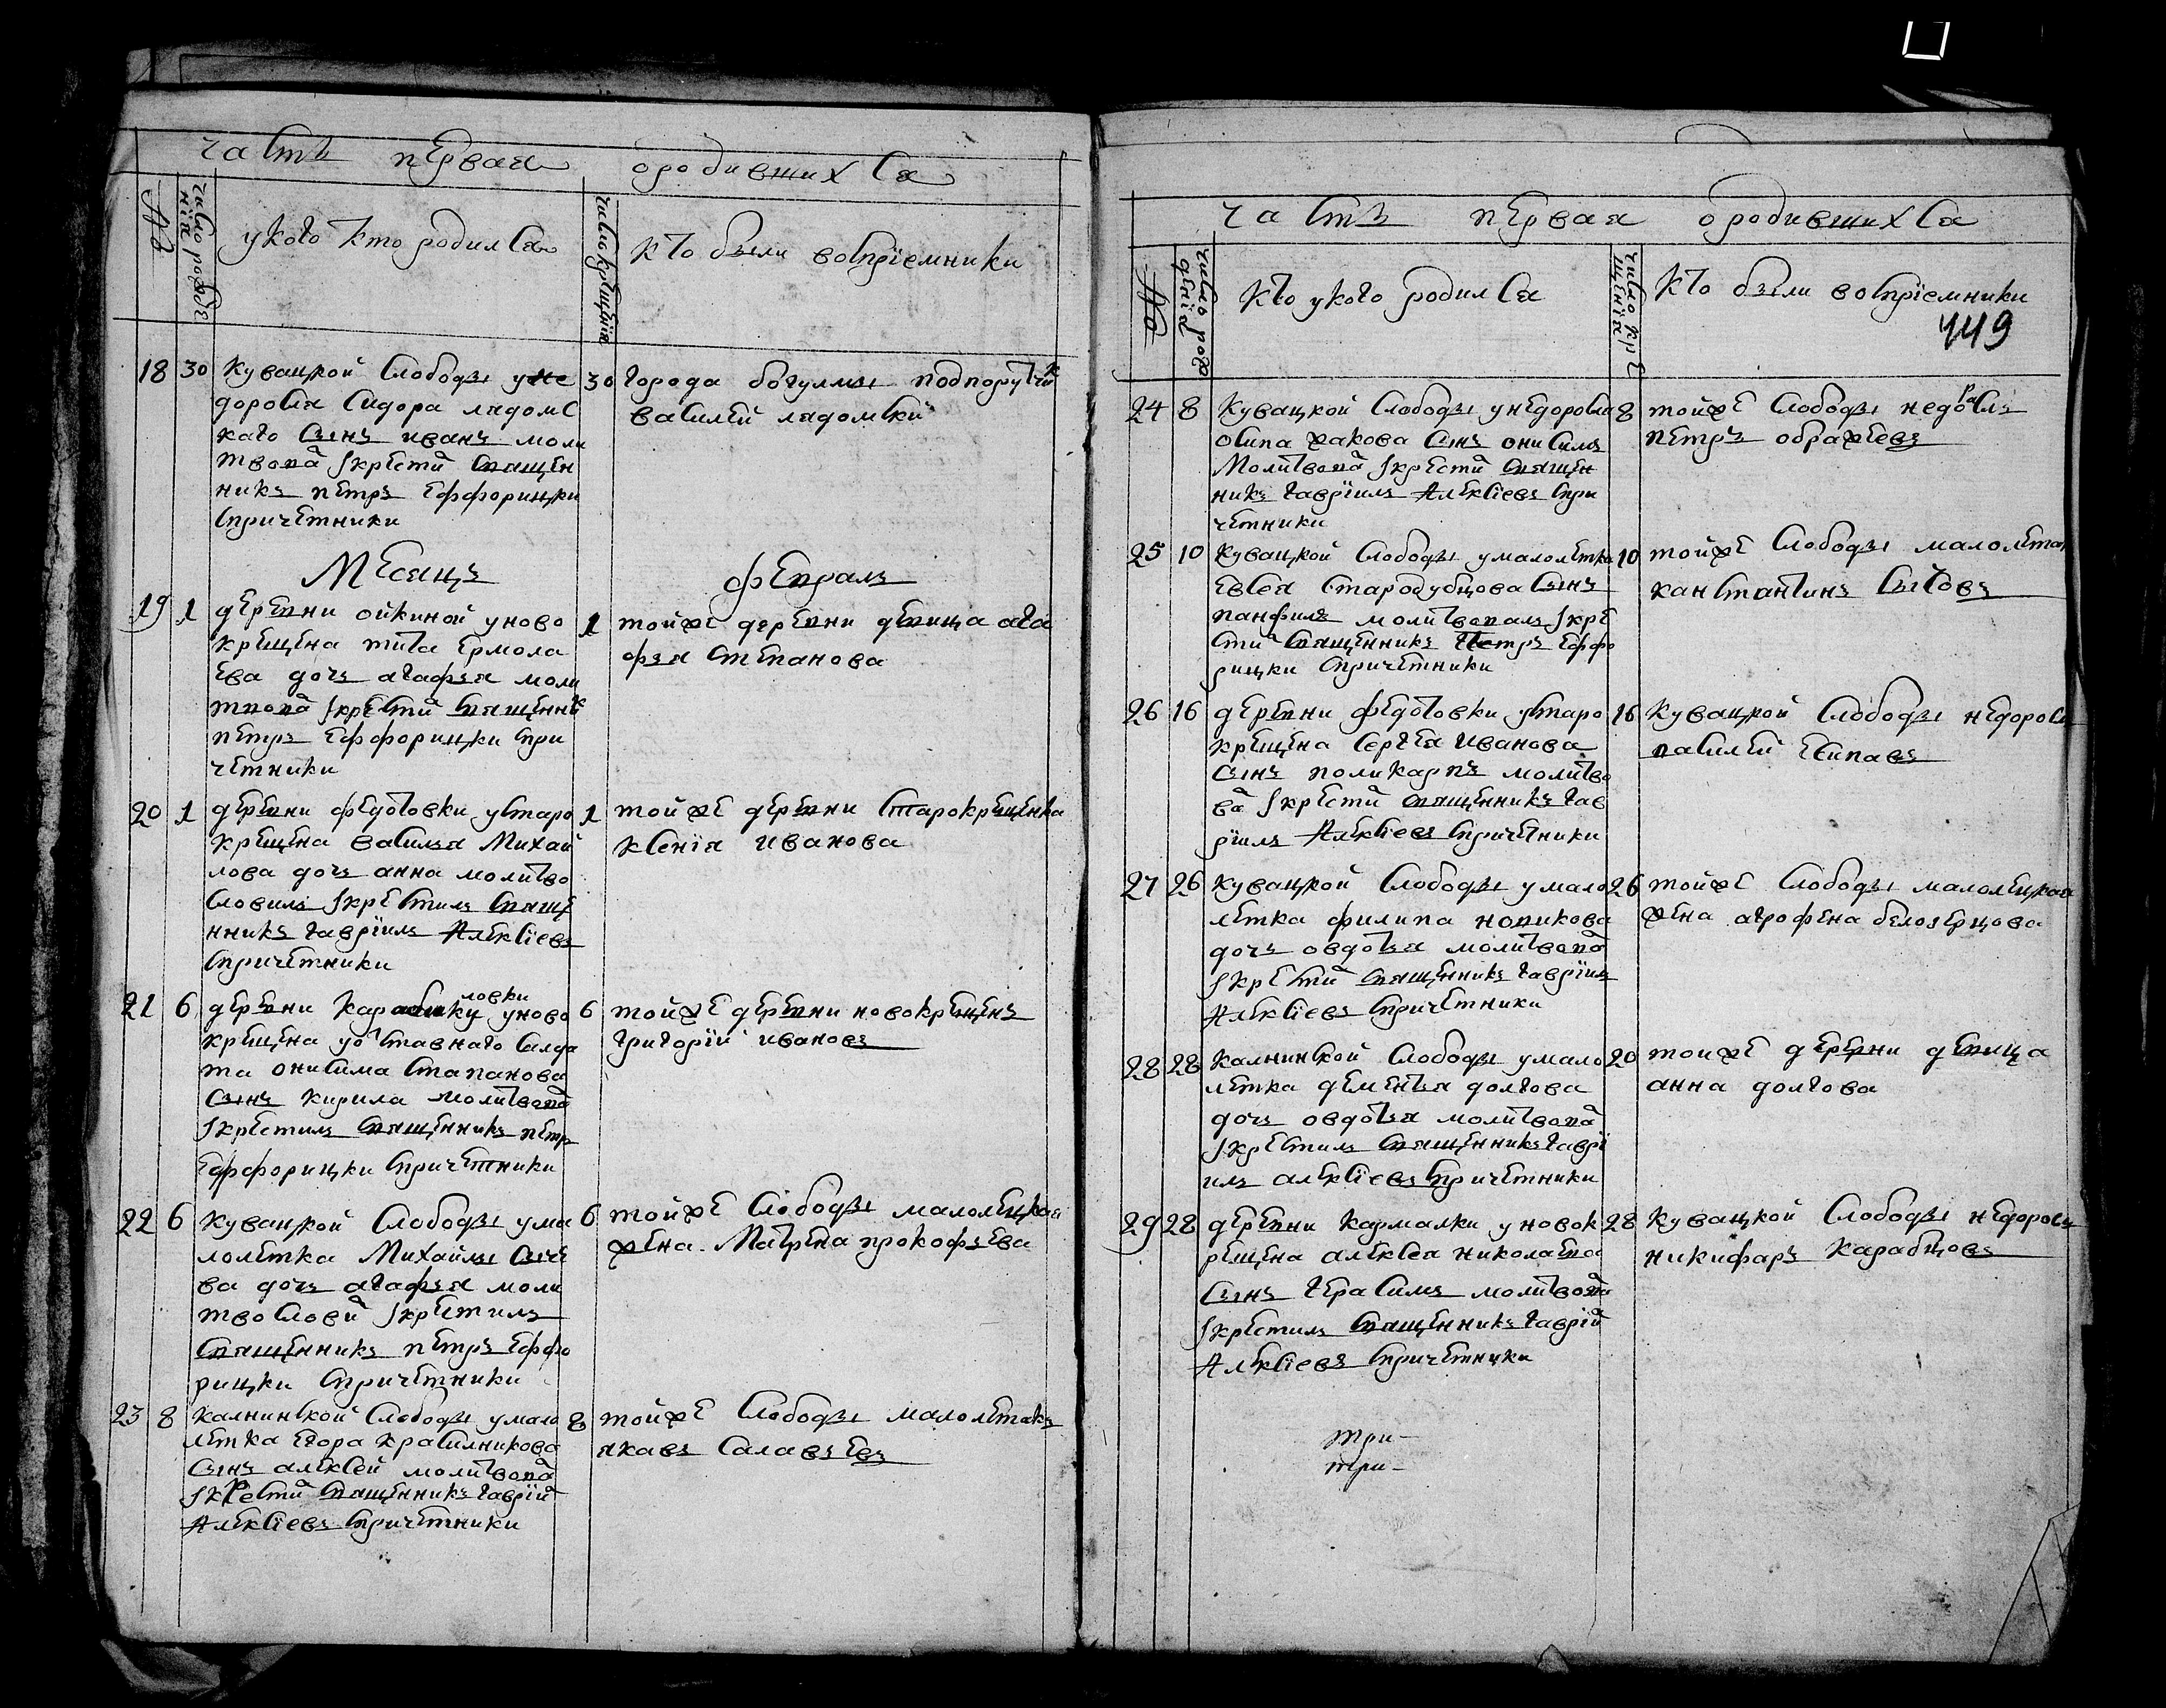 часть первая о родившихся
№
число рождения
у кого кто родился
число крещения
кто были восприемники
18 30 Кувацкой слободы у не
доросля Сидора Лядомс
каго сынъ Иванъ моли
твовалъ крестилъ священ
никъ Петръ Еффорицки
с причетники
30 города богулмы подпоручик
василей лядомский
Месяцъ февраль
19 1 деревни ойкиной у ново
крещена тита ермола
ева дочь агафья моли
твовалъ крестилъ священник
петръ еффорицки с при
четники
1 тойже деревни девица ага
фья степанова
20 1 деревни федотовки у старо
крещена василья Михай
лова дочь анна молитво
словилъ крестилъ свяще
нникъ гаврiилъ Алексiевъ
с причетники
1 тойже деревни старокрещенка
ксенiя иванова
21 6 деревни кара ловки у ново
крещена у отставнаго салда
та онисима стапанова
сынъ кирила молитвовалъ
крестилъ священникъ петръ
еффорицки с причетники
6 тойже деревни новокрещенъ
григорiй ивановъ
22 6 Кувацкой слободы у ма
лолетка Михайлы сыче
ва дочь агафья моли
твословилъ крестилъ
священникъ петръ еффо
рицки с причетники
6 тойже слободы малолецкая
жена Матрена прокофьева
23 8 калнинской слободы у мало
летка егора красилникова
сынъ алексей молитвовалъ
крестилъ священникъ гаврiил
Алексiевъ с причетники
8 тойже слободы малолетакъ
якавъ салавьевъ
часть первая о родившихся
№
число рождения
кто у кого родился
число крещенiя
кто были восприемники
449
24 8 Кувацкой слободы у недоросля
осипа жакова сынъ онисимъ
Молитвовалъ крестилъ священ
никъ гаврiилъ Алексiевъ с при
четники
8 тойже слободы недорасль
петръ ображеевъ
25 10 Кувацкой слободы у малолетка
евсея стародубцова сынъ
панфилъ молитвовалъ кре
стил священникъ Петръ еффо
рицки с причетники
10 тойже слободы малолетак
канстантинъ сытовъ
26 16 деревни федотовки у старо
крещена сергея иванова
сынъ поликарпъ молитво
валъ крестилъ священникъ гав
рiилъ Алексiевъ с причетники
16 Кувацкой слободы недоросль
василей есипавъ
27 26 Кувацкой слободы у мало
летка филипа новикова
дочь овдотья молитвовалъ
крестилъ священникъ гаврiилъ
Алексiевъ с причетники
26 тойже слободы малолецкая
жена агрофена белозерцова
28 28 калнинской слободы у мало
летка дементья долгова
дочь овдотья молитвовалъ
крестилъ священникъ гаврi
илъ алексiевъ с причетники
20 тойже деревни девица
анна долгова
29 28 деревни кармалки у новок
рещена алексея николаева
сынъ герасимъ молитвовалъ
крестилъ священникъ гаврiил
Алексiевъ с причетники
28 Кувацкой слободы недоросль
никифаръ карабцовъ
при-
при-